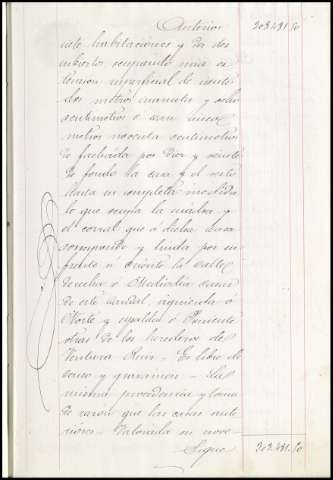 Anterior 303.481.50
siete habitaciones y en des
cubierto ocupando una es
tension superficial de ciento
dos metros cuarenta y ocho
centimetros ó sean nueve
metros noventa centimetros
de fachada por diez y siete
de fondo la casa y el resto
hasta su completa medida
lo que ocupa la cuadra y
el corral que á dicha casa
corresponde y linda por su
frente ó Oriente la calle
de en medio casas
de este caudal, izquierda ó
Norte y espalda ó Poniente
otras de los herederos de
Ventura Ruiz - Es libre de
censo y gravamen - La
misma procedencia y toma
de razon que las casas ante
riores. Valorada en nove-
Sigue 303.481.50